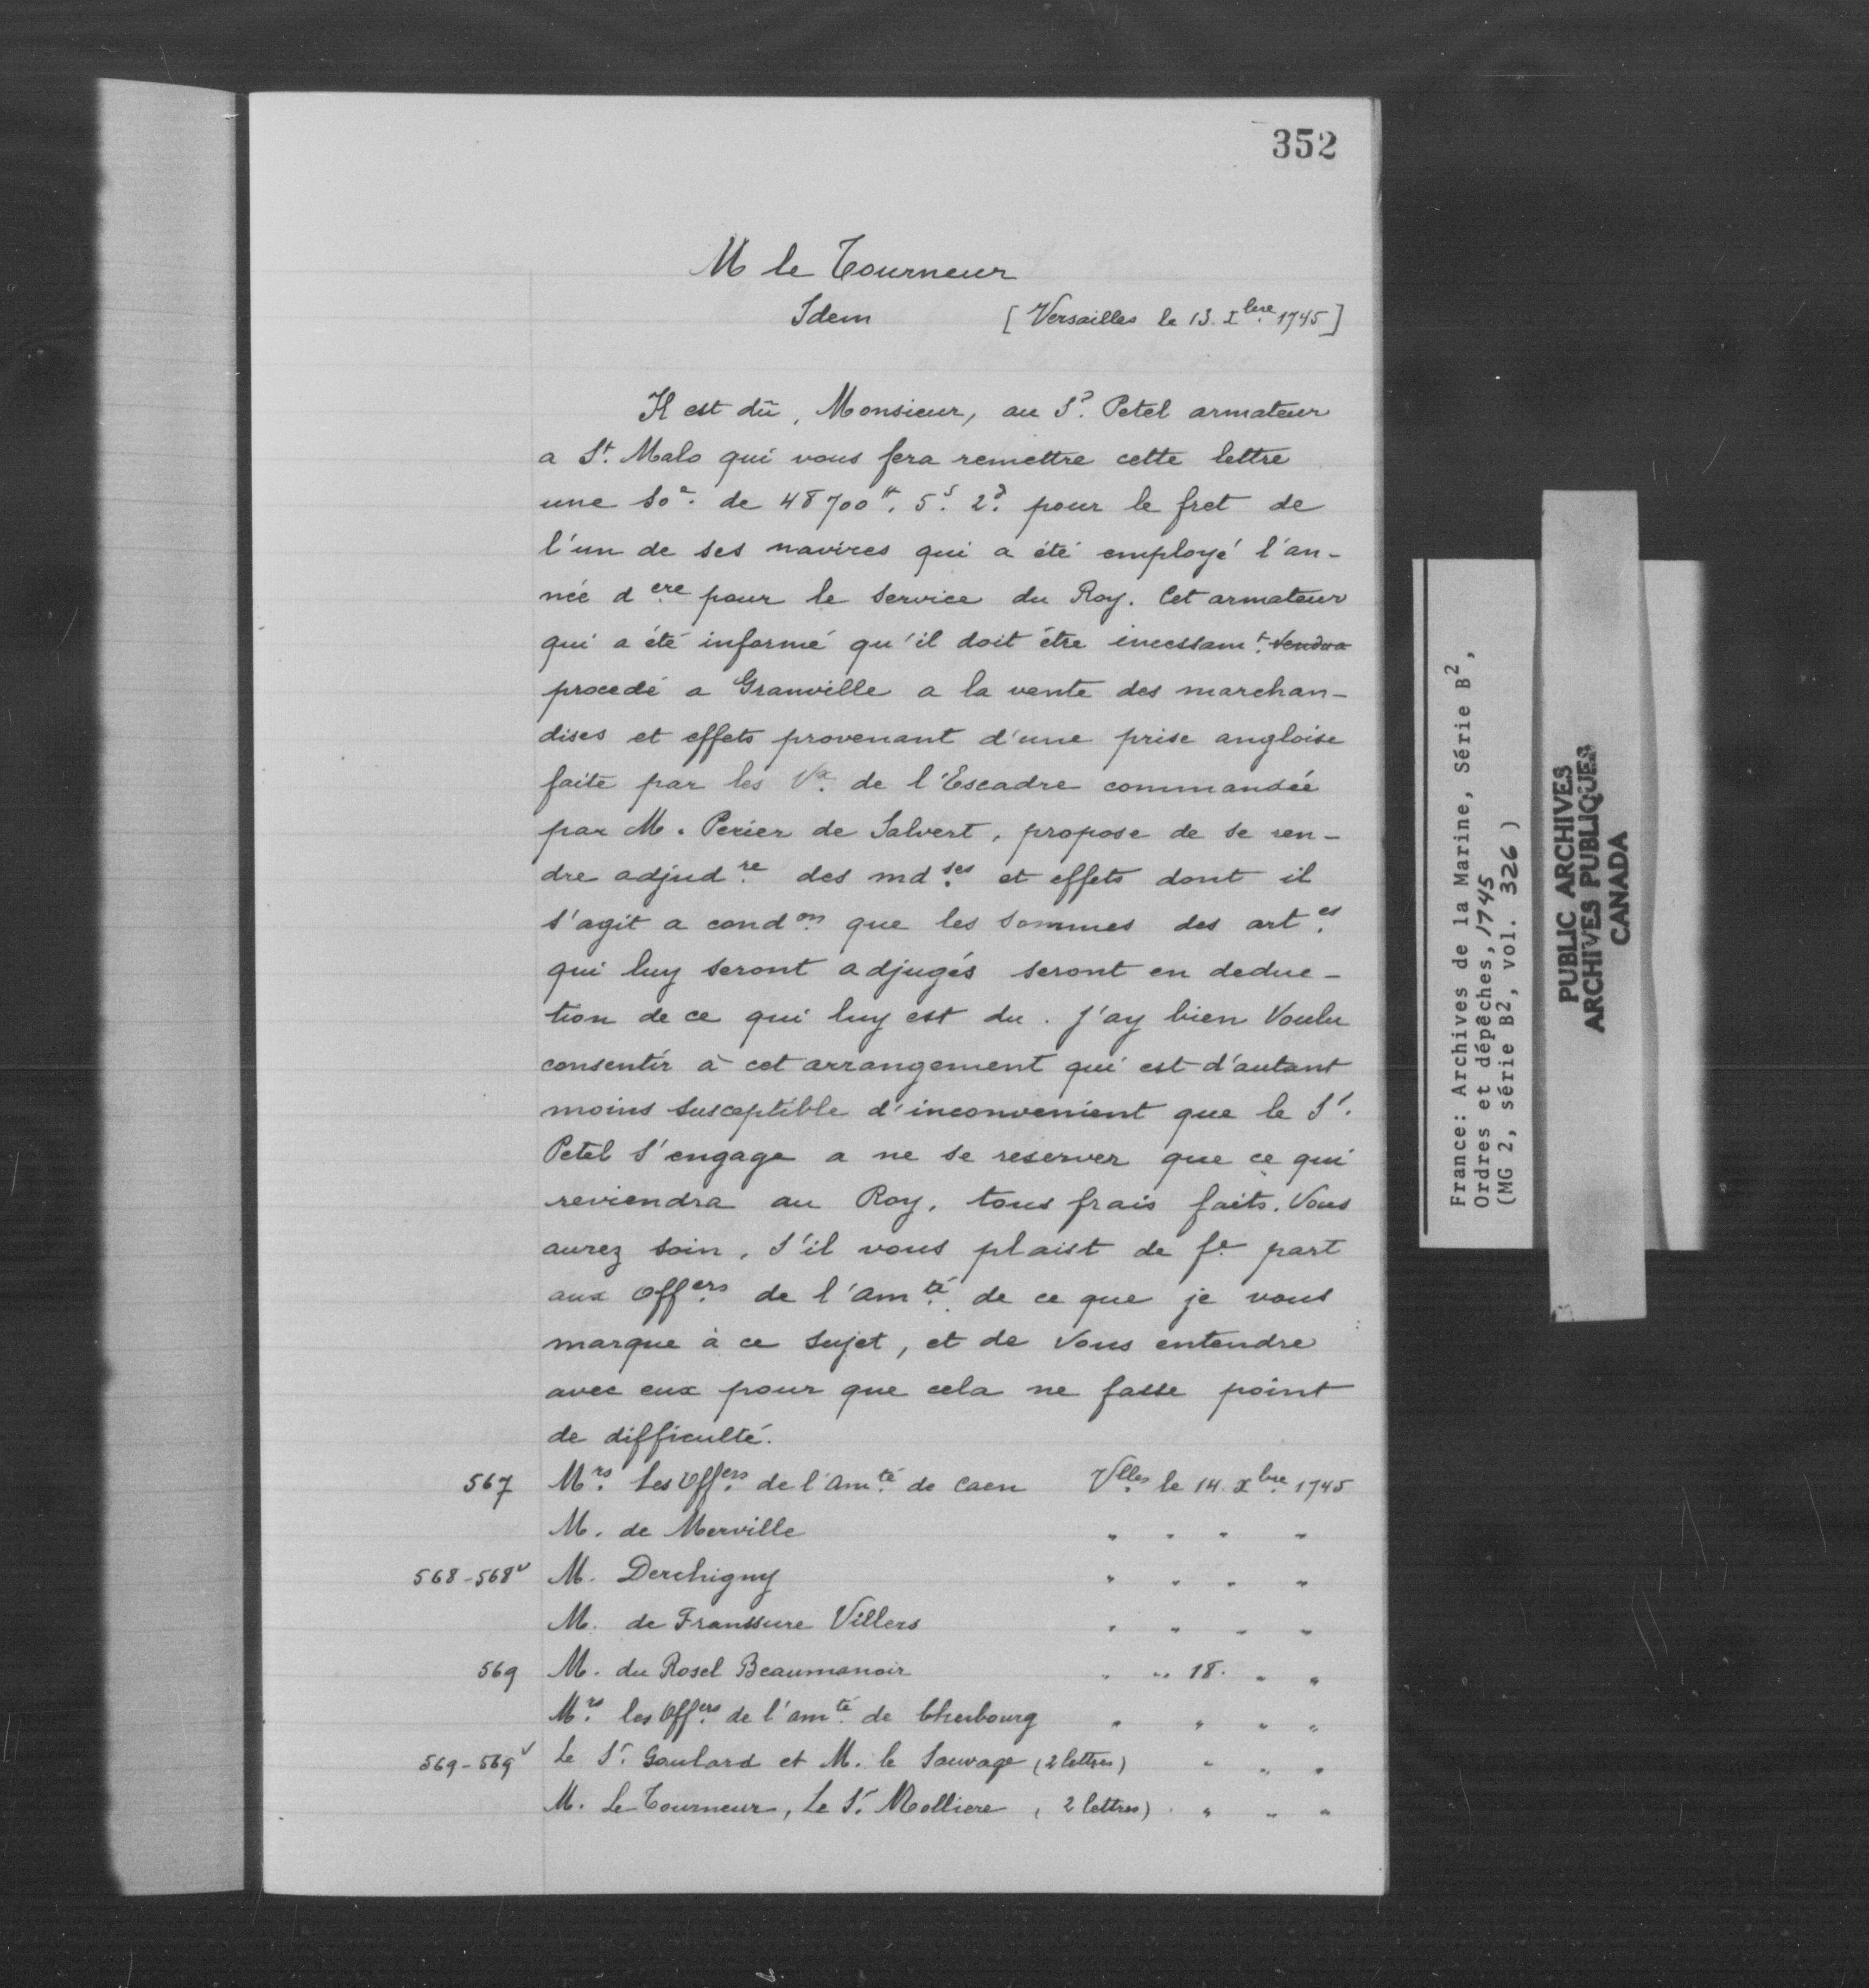 352
M le Tourneur
Idem [Versailles le 13. Xbre 1745]
Il est dû, Monsieur, au Sr. Petel armateur
a St. Malo qui vous fera remettre cette lettre
une soe. de 48700tt. 5s. 2d. pour le fret de
l'un de ses navires qui a été employé l'an-
née dere pour le service du Roy. Cet armateur
qui a été informé qu'il doit être incessamt. vendra
procedé a Granville a la vente des marchan-
dises et effets provenant d'une prise angloise
faite par les Vx. de l'Escadre commandée
par M. Perier de Salvert, propose de se ren-
dre adjudre. des mdses. et effets dont il
s'agit a condon. que les sommes des artes.
qui luy seront adjugés seront en deduc-
tion de ce qui luy est du. J'ay bien voulu
consentir à cet arrangement qui est d'autant
moins susceptible d'inconvenient que le Sr.
Petel s'engage a ne se reserver que ce qui
reviendra au Roy, tous frais faits. Vous
aurez soin, s'il vous plaist de fe part
aux Offers. de l'amté. de ce que je vous
marque à ce sujet, et de vous entendre
avec eux pour que cela ne fasse point
de difficulté.
567 Mrs. les Offers. de l'amté. de Caen Vlles. le 14. Xbre. 1745
M. de Merville " " " "
568-568v M. Derchigny " " " "
M. de Franssure Villers " " " "
569 M. du Rosel Beaumanoir " " 18. " "
Mrs. les Offers. de l'amté. de Cherbourg " " " "
569-569v Le Sr. Goulard et M. le Sauvage (2 lettres) " " "
M. Le Tourneur, Le Sr. Molliere (2 lettres) " " "
France: Archives de la Marine, Série B2,
Ordres et dépêches, 1745
(MG 2, série B2, vol. 326)
PUBLIC ARCHIVES
ARCHIVES PUBLIQUES
CANADA